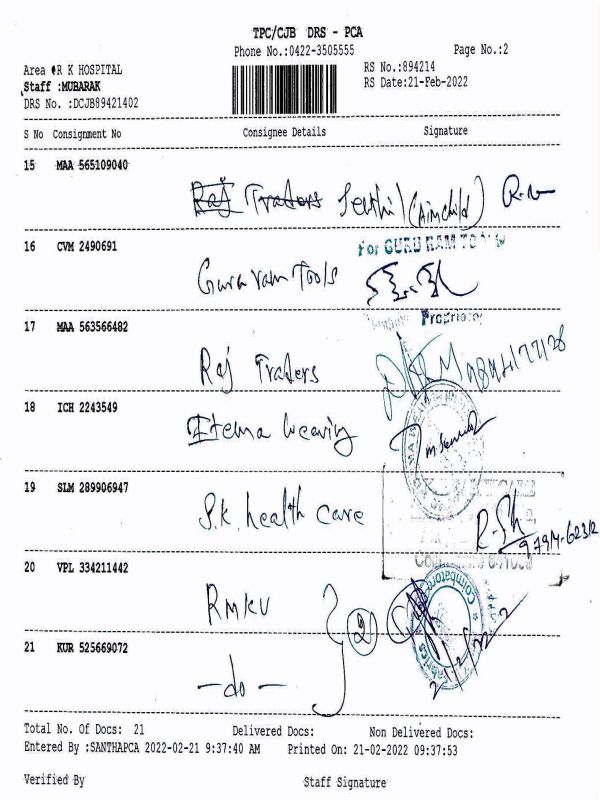 TPC/CJB DRS - PCA
Phone No.:0422-3505555 Page No.:2
Area :R K HOSPITAL RS No.:894214
Staff :MUBARAK RS Date:21-Feb-2022
DRS No. :DCJB89421402
S No Consignment No Consignee Details Signature
15 MAA 565109040
Raj Traders Senthil (Aimchild)
16 CVM 2490691 For GURU RAM TOOLS
Gururam Tools
17 MAA 563566482 Proprietor
Raj Traders
18 ICH 2243549
Itema Weaving
19 SLM 289906947
S.K health care
20 VPL 334211442 Coimbatore
RMKV 2
21 KUR 525669072 Fabrics
-do- 21/2/22
Total No. Of Docs: 21 Delivered Docs: Non Delivered Docs:
Entered By :SANTHAPCA 2022-02-21 9:37:40 AM Printed On: 21-02-2022 09:37:53
Verified By Staff Signature